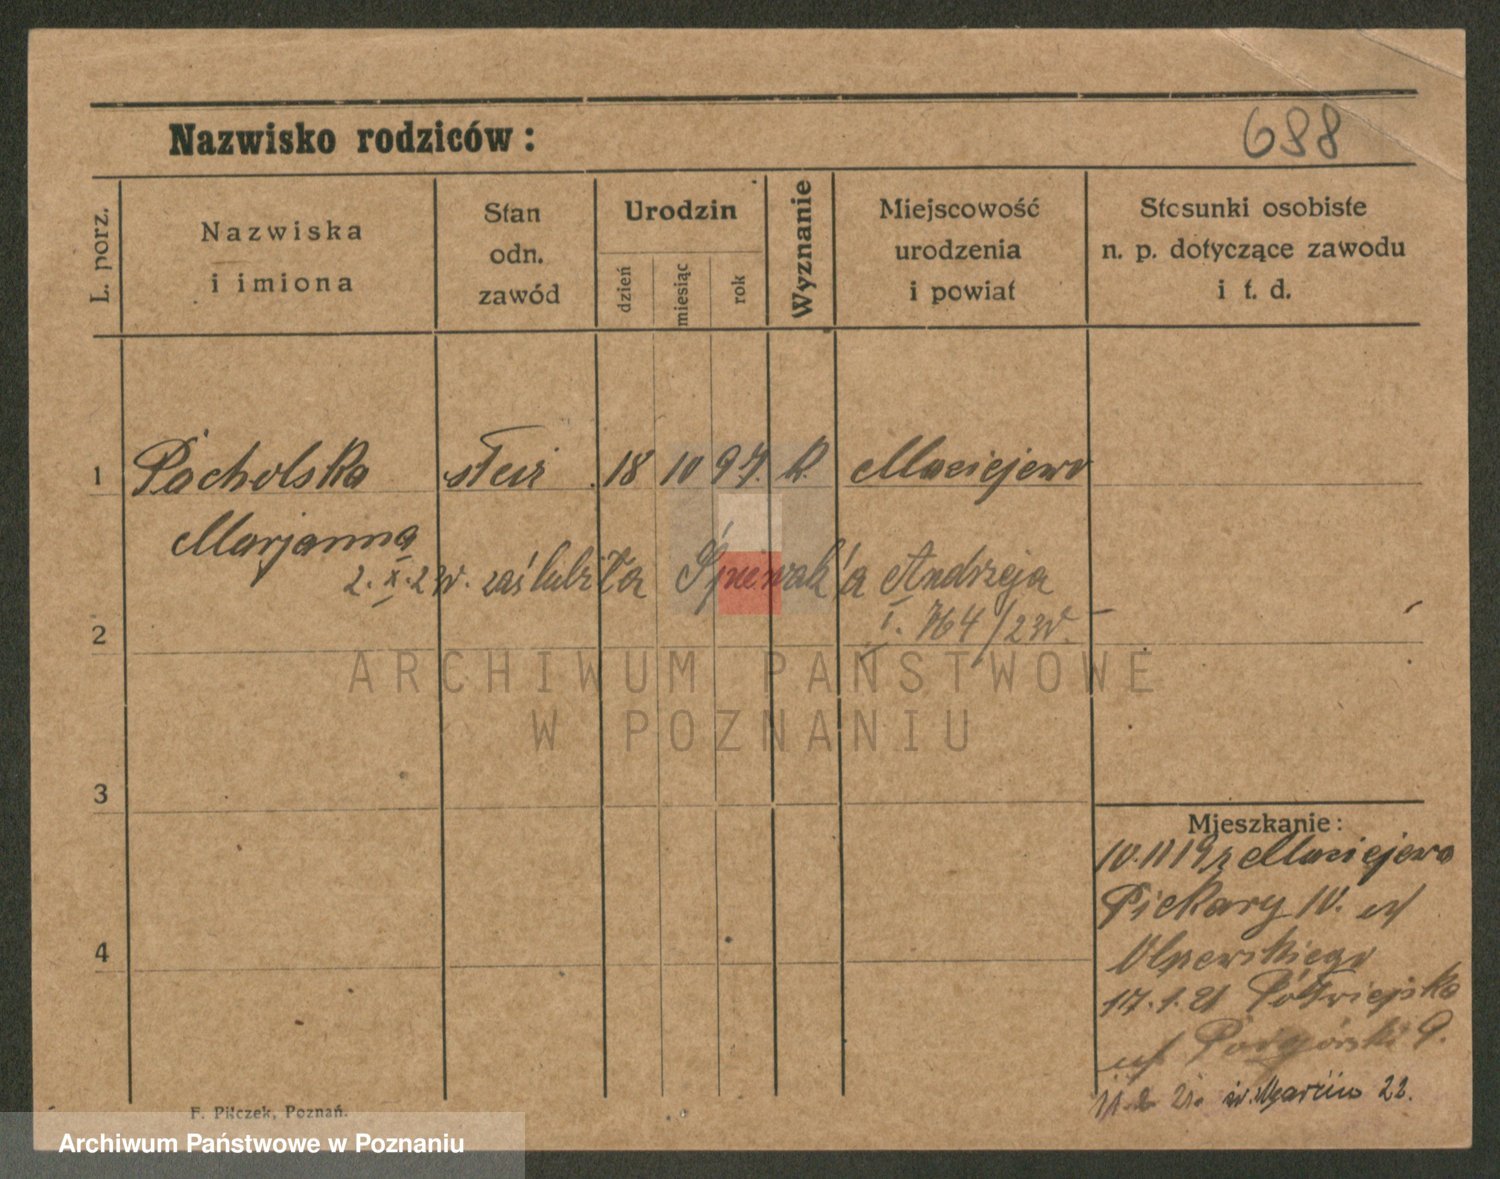 688
Nazwisko rodziców:
L. porz.
Nazwiska
i imiona
Stan
odn.
zawód
Urodzin
dzień
miesiąc
rok
Wyznanie
Miejscowość
urodzenia
i powiat
Stosunki osobiste
n. p. dotyczące zawodu
i t. d.
1 Pacholska służ. 18 10 97. k. Maciejewo
Marjanna
2. X. 23r. zaślubiła Śpiewak'a Andrzeja
I. 764/23r.
2
ARCHIWUM PAŃSTWOWE
W POZNANIU
3
4
Mieszkanie:
10.11 19 z Maciejewo
Piekary 10.
17.1.21 Półwiejska
Podgórski 9.
21. św. Marcin 22.
F. Pilczek, Poznań.
Archiwum Państwowe w Poznaniu